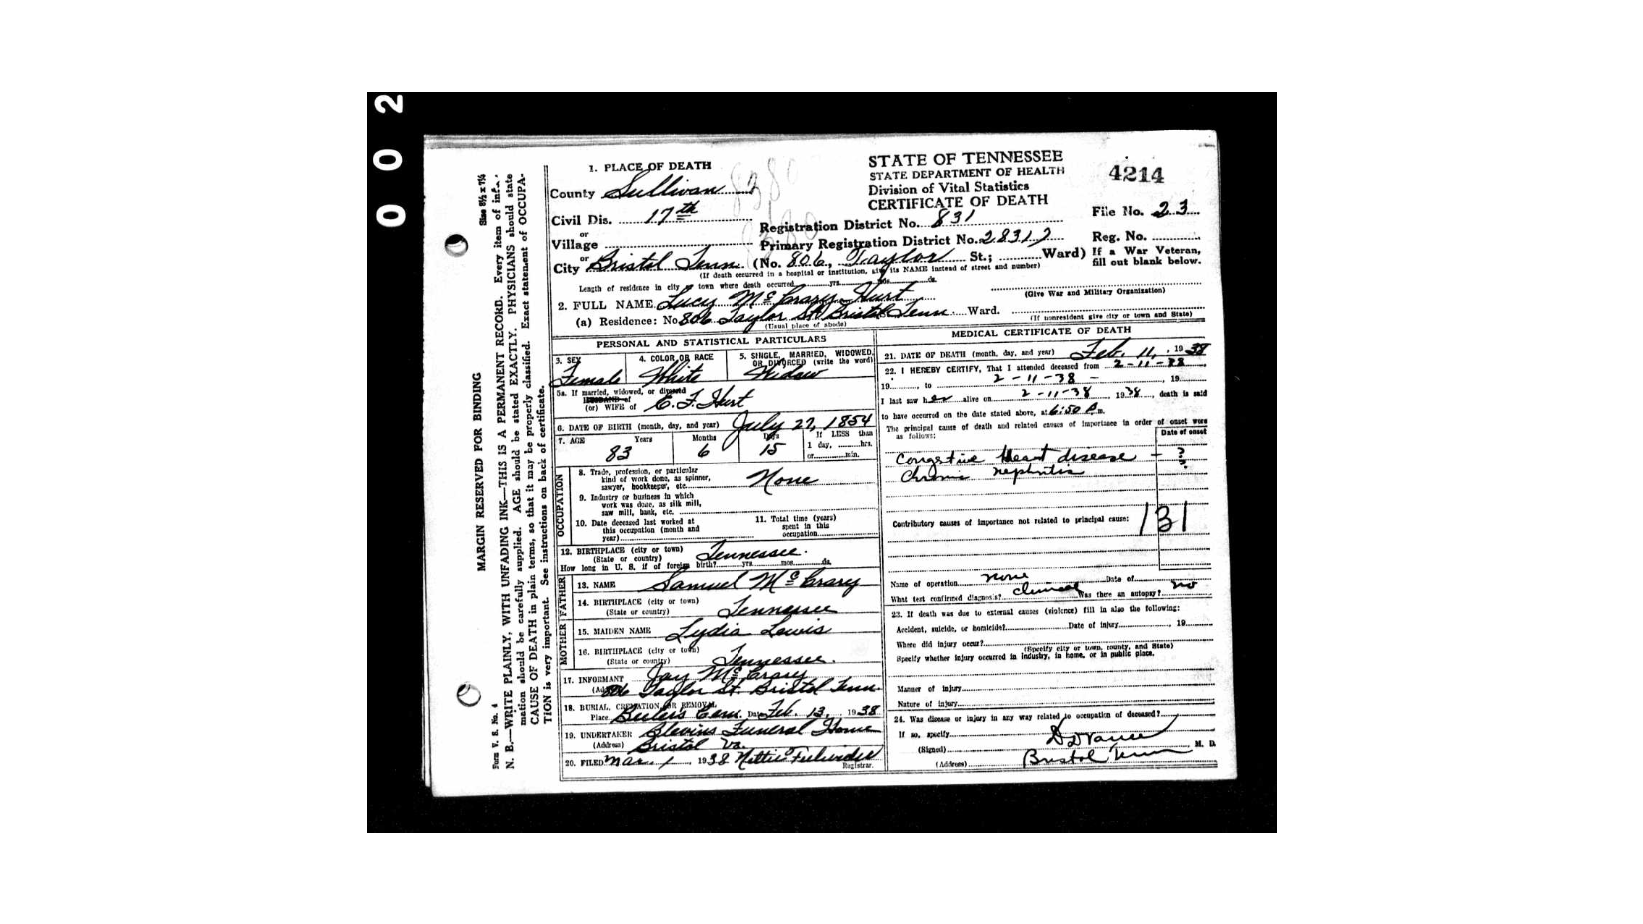 0 0 2
MARGIN RESERVED FOR BINDING
Size 8½ x 7½
N. B.—WRITE PLAINLY, WITH UNFADING INK—THIS IS A PERMANENT RECORD. Every item of
mation should be carefully supplied. AGE should be stated EXACTLY. PHYSICIANS should state
CAUSE OF DEATH in plain terms, so that it may be properly classified. Exact statement of OCCUPA-
TION is very important. See instructions on back of certificate.
Form V. S. No. 4
STATE OF TENNESSEE
STATE DEPARTMENT OF HEALTH
Division of Vital Statistics
CERTIFICATE OF DEATH
4214
1. PLACE OF DEATH
County Sullivan
Civil Dis. 17th
or
Village
Registration District No. 831
File No. 23
Primary Registration District No. 28317
Reg. No.
City Bristol Tenn. (No. 806, Taylor St.; Ward)
If a War Veteran,
fill out blank below.
(If death occurred in a hospital or institution, give its NAME instead of street and number)
Length of residence in city or town where death occurred ds.
2. FULL NAME Lucy McCrary Hurt
(Give War and Military Organization)
(a) Residence: No 806 Taylor St Bristol Tenn Ward.
(Usual place of abode)
(If nonresident give city or town and State)
PERSONAL AND STATISTICAL PARTICULARS
3. SEX
Female
4. COLOR OR RACE
White
5. SINGLE, MARRIED, WIDOWED,
OR DIVORCED (write the word)
Widow
5a. If married, widowed, or divorced
HUSBAND of
(or) WIFE of E. F. Hurt
6. DATE OF BIRTH (month, day, and year) July 27, 1854
7. AGE Years Months Days If LESS than
1 day, hrs.
or min.
83 6 15
OCCUPATION
8. Trade, profession, or particular
kind of work done, as spinner,
sawyer, bookkeeper, etc. None
9. Industry or business in which
work was done, as silk mill,
saw mill, bank, etc.
10. Date deceased last worked at
this occupation (month and
year)
11. Total time (years)
spent in this
occupation
12. BIRTHPLACE (city or town)
(State or country) Tennessee.
How long in U. S. if of foreign birth? yrs. mos. ds.
FATHER
13. NAME Samuel McCrary
14. BIRTHPLACE (city or town)
(State or country) Tennessee
MOTHER
15. MAIDEN NAME Lydia Lewis
16. BIRTHPLACE (city or town)
(State or country) Tennessee.
17. INFORMANT Jay McCrary
(Address) 806 Taylor St. Bristol Tenn.
18. BURIAL, CREMATION, OR REMOVAL
Place Bulers Cem. Date Feb. 13, 1938
19. UNDERTAKER Blevins Funeral Home
(Address) Bristol Va.
20. FILED Mar. 1 1938 Nettie
Registrar.
MEDICAL CERTIFICATE OF DEATH
21. DATE OF DEATH (month, day, and year) Feb. 11, 1938
22. I HEREBY CERTIFY, That I attended deceased from 2-11-38
19 , to 2-11-38 - , 19
I last saw her alive on 2-11-38 1938, death is said
to have occurred on the date stated above, at 6:50 P.m.
The principal cause of death and related causes of importance in order of onset were
as follows:
Date of onset
Congestive Heart disease - ?
Chronic nephritis ?
Contributory causes of importance not related to principal cause:
131
Name of operation none Date of
What test confirmed diagnosis? clinical Was there an autopsy? no
23. If death was due to external causes (violence) fill in also the following:
Accident, suicide, or homicide? Date of injury 19
Where did injury occur?
(Specify city or town, county, and State)
Specify whether injury occurred in industry, in home, or in public place.
Manner of injury
Nature of injury
24. Was disease or injury in any way related to occupation of deceased?
If so, specify
(Signed) D D Vance M. D.
(Address) Bristol Tenn